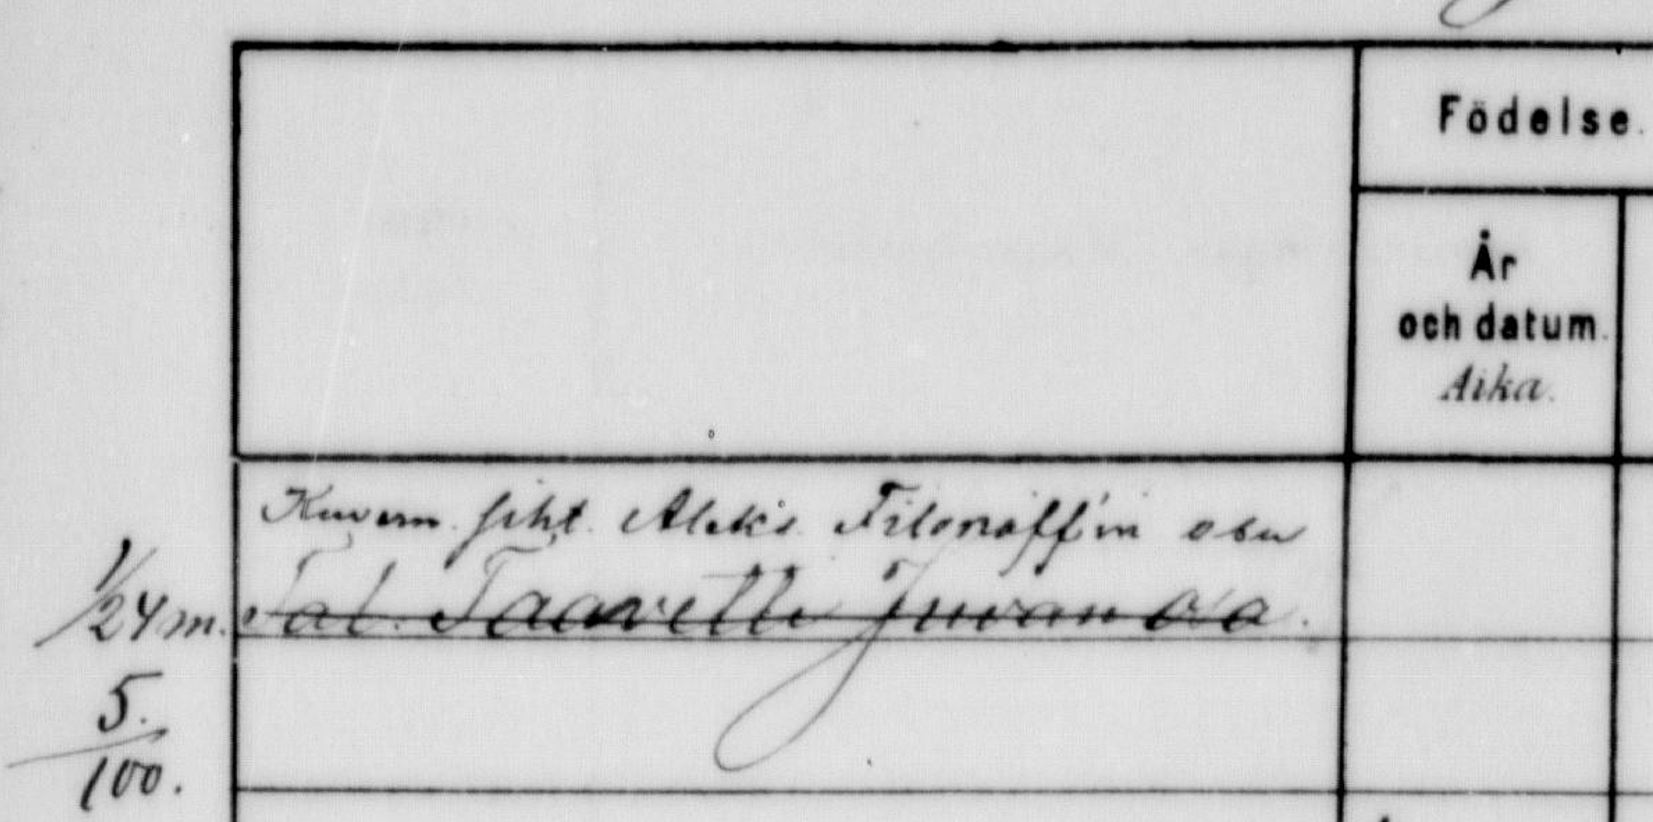 Födelse.
År
och datum.
Aika.
Kuvern. siht. Aleks. Filonoff'in osa
1/24 m. Tal. Taavetti Juvan osa.
5.
100.